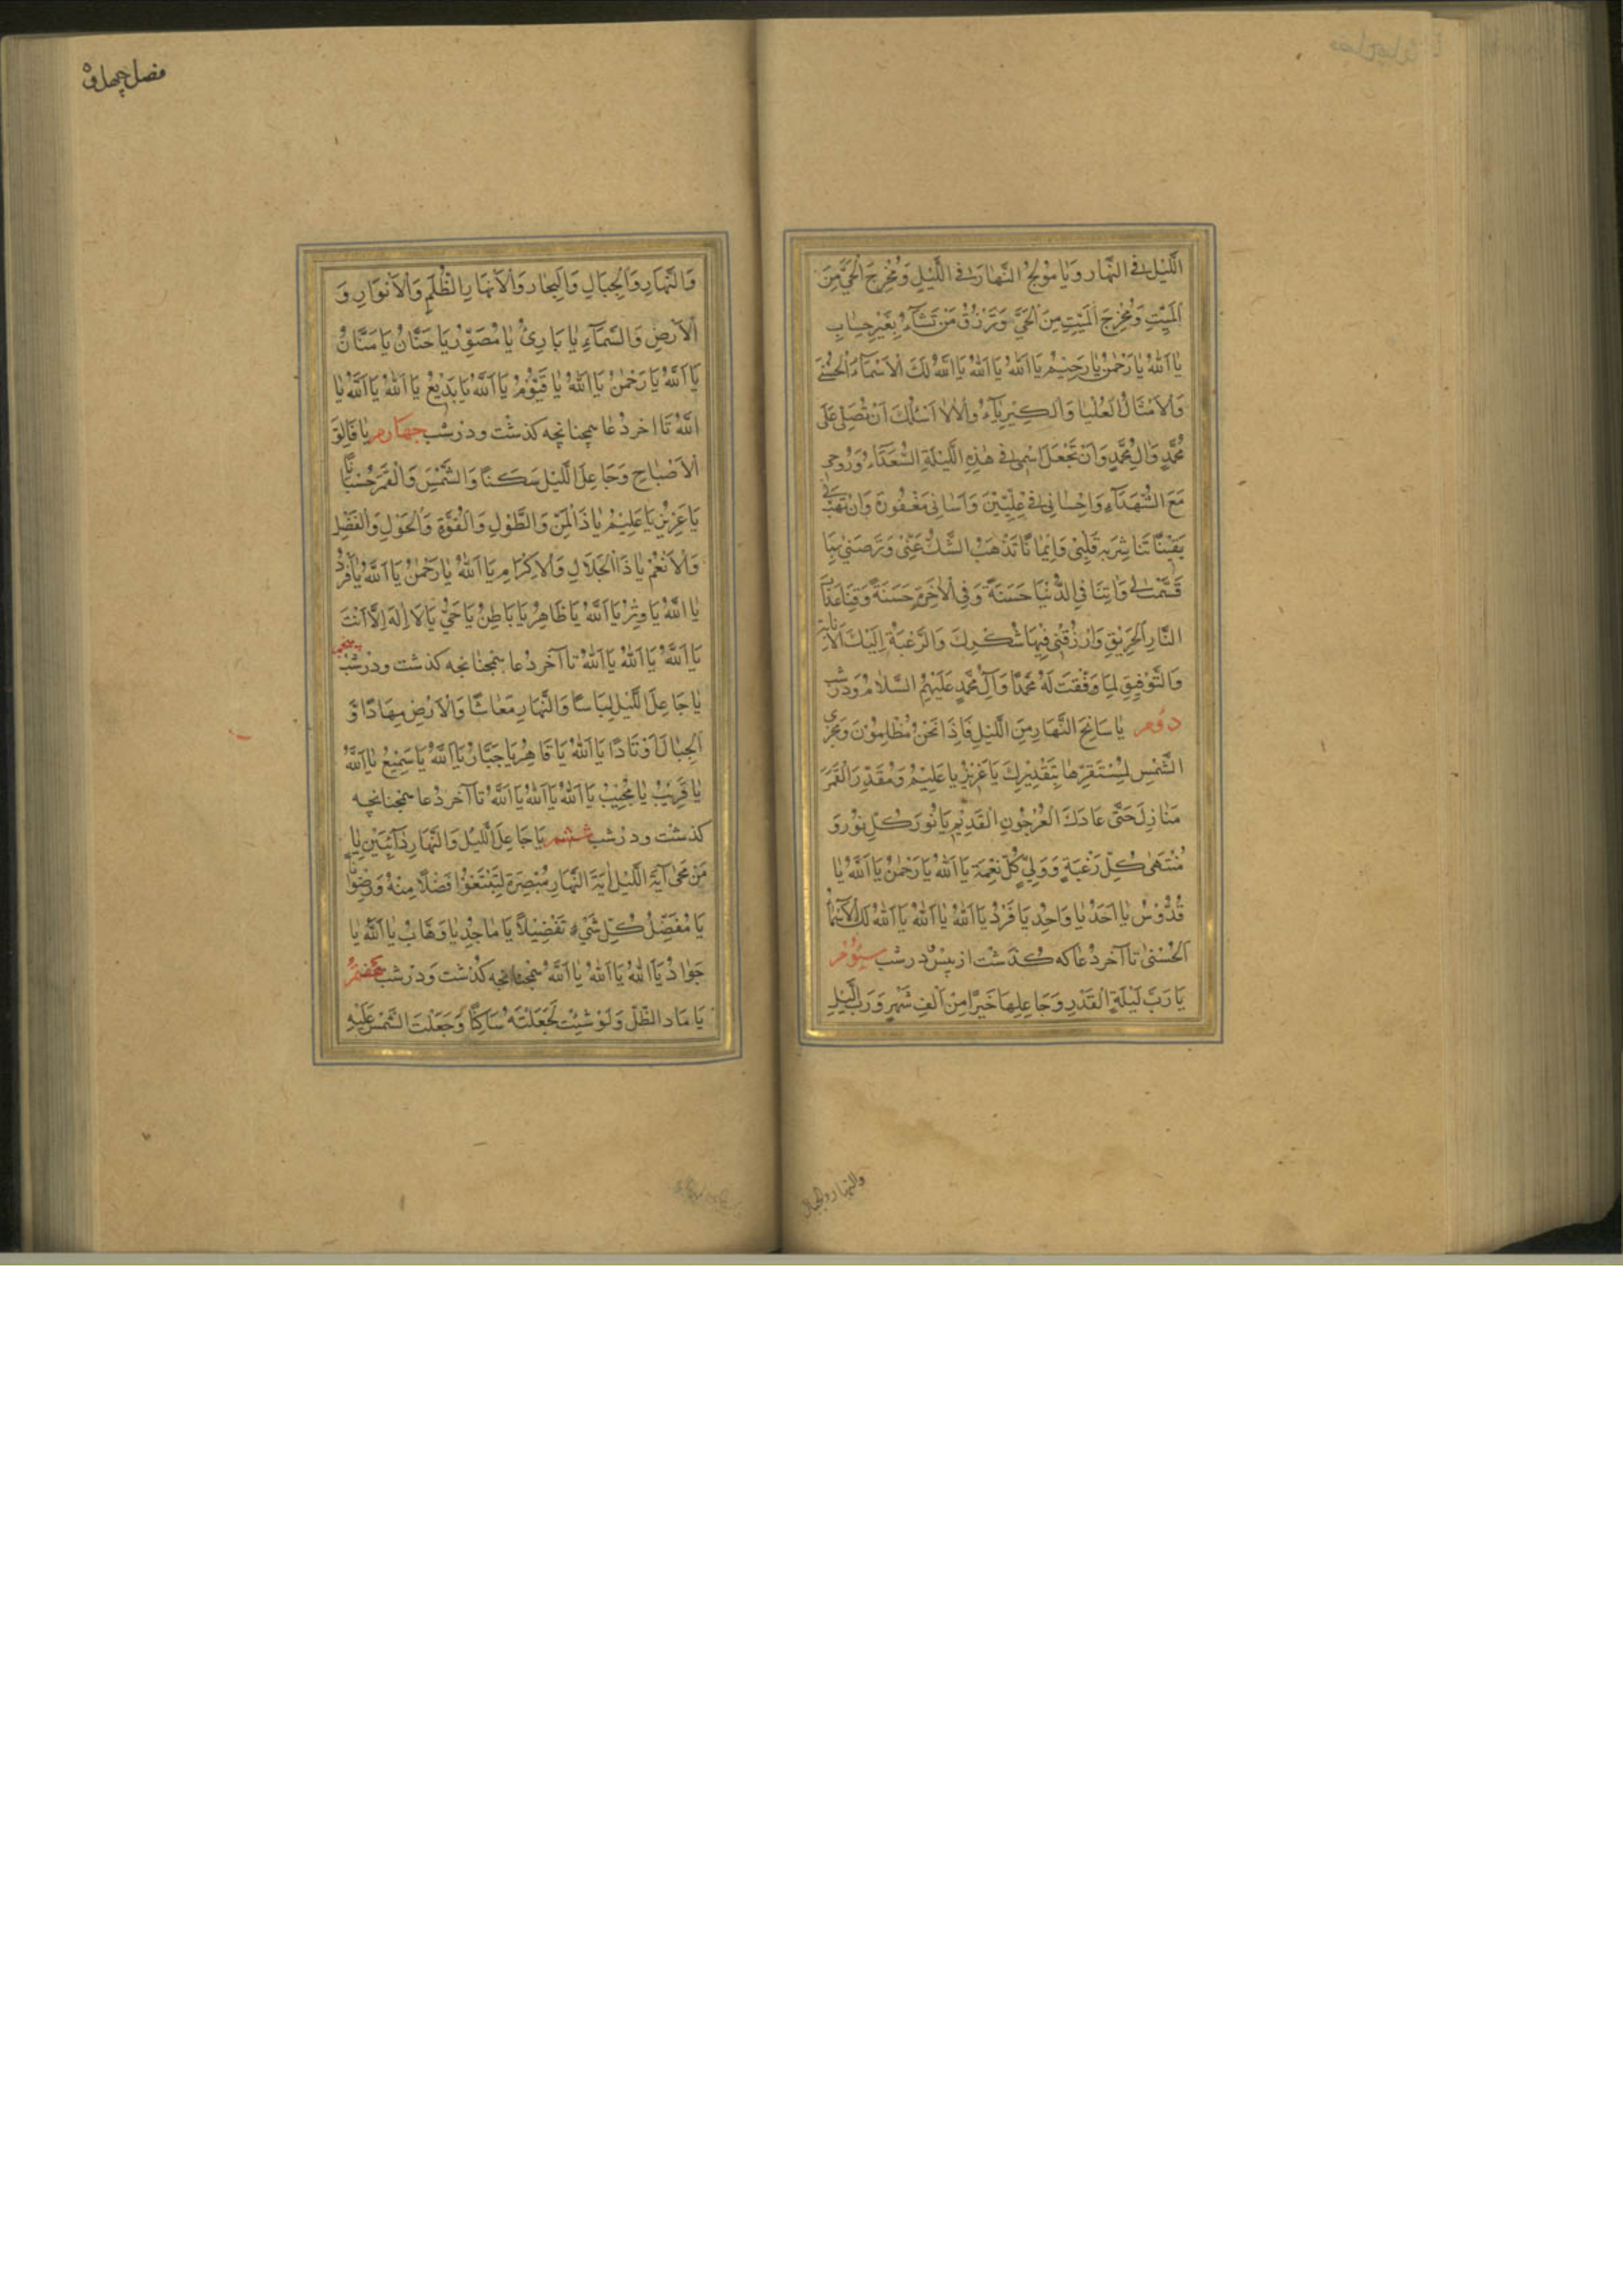 اللَّيْلِ فِي النَّهَارِ وَيَا مُولِجَ النَّهَارِ فِي اللَّيْلِ وَمُخْرِجَ الْحَيِّ مِنَ
الْمَيِّتِ وَمُخْرِجَ الْمَيِّتِ مِنَ الْحَيِّ وَتَرْزُقُ مَنْ تَشَاءُ بِغَيْرِ حِسَابٍ
يَا اَللّٰهُ يَا رَحْمٰنُ يَا رَحِيمُ يَا اَللّٰهُ يَا اَللّٰهُ يَا اَللّٰهُ لَكَ الْاَسْمَاءُ الْحُسْنٰى
وَالْاَمْثَالُ الْعُلْيَا وَالْكِبْرِيَاءُ وَالْاٰلَاءُ اَسْئَلُكَ اَنْ تُصَلِّيَ عَلٰى
مُحَمَّدٍ وَاٰلِ مُحَمَّدٍ وَاَنْ تَجْعَلَ اسْمِي فِي هٰذِهِ اللَّيْلَةِ السُّعَدَاءِ وَرُوحِي
مَعَ الشُّهَدَاءِ وَاِحْسَانِي فِي عِلِّيِّينَ وَاِسَائَتِي مَغْفُورَةً وَاَنْ تَهَبَ لِي
يَقِينًا تُبَاشِرُ بِهِ قَلْبِي وَاِيمَانًا تَذْهَبُ الشَّكُّ عَنِّي وَتُرْضِيَنِي بِمَا
قَسَمْتَ لِي وَاٰتِنَا فِي الدُّنْيَا حَسَنَةً وَفِي الْاٰخِرَةِ حَسَنَةً وَقِنَا عَذَابَ
النَّارِ الْحَرِيقِ وَارْزُقْنِي فِيهَا شُكْرَكَ وَالرَّغْبَةَ اِلَيْكَ الْاِنَابَةَ
وَالتَّوْفِيقَ لِمَا وَفَّقْتَ لَهُ مُحَمَّدًا وَاٰلَ مُحَمَّدٍ عَلَيْهِمُ السَّلَامُ وَدَرْ شَبِ
دوم يَا سَالِخَ النَّهَارِ مِنَ اللَّيْلِ فَاِذَا نَحْنُ مُظْلِمُونَ وَمُجْرِيَ
الشَّمْسِ لِمُسْتَقَرِّهَا بِتَقْدِيرِكَ يَا عَزِيزُ يَا عَلِيمُ وَمُقَدِّرَ الْقَمَرِ
مَنَازِلَ حَتّٰى عَادَ كَالْعُرْجُونِ الْقَدِيمِ يَا نُورَ كُلِّ نُورٍ وَ
مُنْتَهٰى كُلِّ رَغْبَةٍ وَوَلِيَّ كُلِّ نِعْمَةٍ يَا اَللّٰهُ يَا رَحْمٰنُ يَا اَللّٰهُ يَا
قُدُّوسُ يَا اَحَدُ يَا وَاحِدُ يَا فَرْدُ يَا اَللّٰهُ يَا اَللّٰهُ يَا اَللّٰهُ لَكَ الْاَسْمَاءُ
الْحُسْنٰى تا آخر دعا كه گذشت از پيش در شب سيوم
يَا رَبَّ لَيْلَةِ الْقَدْرِ وَجَاعِلَهَا خَيْرًا مِنْ اَلْفِ شَهْرٍ وَرَبَّ اللَّيْلِ
والنهار والجبال
فصل چهل و
وَالنَّهَارِ وَالْجِبَالِ وَالْبِحَارِ وَالْاَنْهَارِ يَا الظُّلَمِ وَالْاَنْوَارِ وَ
الْاَرْضِ وَالسَّمَاءِ يَا بَارِئُ يَا مُصَوِّرُ يَا حَنَّانُ يَا مَنَّانُ
يَا اَللّٰهُ يَا رَحْمٰنُ يَا اَللّٰهُ يَا قَيُّومُ يَا اَللّٰهُ يَا بَدِيعُ يَا اَللّٰهُ يَا اَللّٰهُ يَا
اَللّٰهُ تا اخر دعا همچنانچه گذشت ودر شب چهارم يَا فَالِقَ
الْاِصْبَاحِ وَجَاعِلَ اللَّيْلِ سَكَنًا وَالشَّمْسِ وَالْقَمَرِ حُسْبَانًا
يَا عَزِيزُ يَا عَلِيمُ يَا ذَا الْمَنِّ وَالطَّوْلِ وَالْقُوَّةِ وَالْحَوْلِ وَالْفَضْلِ
وَالْاَنْعُمِ يَا ذَا الْجَلَالِ وَالْاِكْرَامِ يَا اَللّٰهُ يَا رَحْمٰنُ يَا اَللّٰهُ يَا فَرْدُ
يَا اَللّٰهُ يَا وِتْرُ يَا اَللّٰهُ يَا ظَاهِرُ يَا بَاطِنُ يَا حَيُّ يَا لَا اِلٰهَ اِلَّا اَنْتَ
يَا اَللّٰهُ يَا اَللّٰهُ يَا اَللّٰهُ تا آخر دعا همچنانچه گذشت ودر شب پنجم
يَا جَاعِلَ اللَّيْلِ لِبَاسًا وَالنَّهَارِ مَعَاشًا وَالْاَرْضِ مِهَادًا وَ
الْجِبَالِ اَوْتَادًا يَا اَللّٰهُ يَا قَاهِرُ يَا جَبَّارُ يَا اَللّٰهُ يَا سَمِيعُ يَا اَللّٰهُ
يَا قَرِيبُ يَا مُجِيبُ يَا اَللّٰهُ يَا اَللّٰهُ يَا اَللّٰهُ تا آخر دعا همچنانچه
گذشت ودر شب ششم يَا جَاعِلَ اللَّيْلِ وَالنَّهَارِ دَائِبَيْنِ يَا
مَنْ مَحٰى آيَةَ اللَّيْلِ اٰيَةَ النَّهَارِ مُبْصِرَةً لِتَبْتَغُوا فَضْلًا مِنْهُ وَرِضْوَانًا
يَا مُفَصِّلَ كُلِّ شَيْءٍ تَفْصِيلًا يَا مَاجِدُ يَا وَهَّابُ يَا اَللّٰهُ يَا
جَوَادُ يَا اَللّٰهُ يَا اَللّٰهُ يَا اَللّٰهُ همچنانچه گذشت ودر شب هفتم
يَا مَادَّ الظِّلِّ وَلَوْ شِئْتَ لَجَعَلْتَهُ سَاكِنًا وَجَعَلْتَ الشَّمْسَ عَلَيْهِ